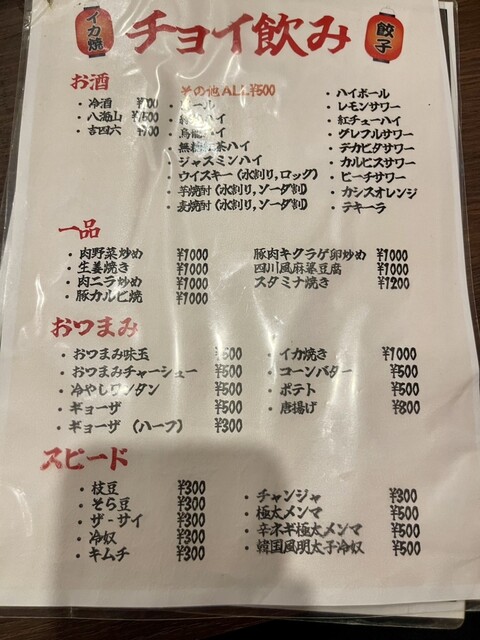 イカ焼
チョイ飲み
餃子
お酒
・冷酒
・八海山
・吉四六
その他ALL¥500
無糖紅茶ハイ
・ジャスミンハイ
・ウイスキー(水割り,ロック)
・芋焼酎(水割り,ソーダ割)
・麦焼酎(水割り,ソーダ割)
・ハイボール
・レモンサワー
・紅チューハイ
・グレフルサワー
・デカビタサワー
・カルピスサワー
・ピーチサワー
・カシスオレンジ
・テキーラ
一品
・肉野菜炒め ¥1000
・生姜焼き ¥1000
・肉ニラ炒め ¥1000
・豚カルビ焼 ¥1000
豚肉キクラゲ卵炒め ¥1000
四川風麻婆豆腐 ¥1000
スタミナ焼き ¥1200
おつまみ
・おつまみ味玉 ¥500
・おつまみチャーシュー ¥500
・冷やしワンタン ¥500
・ギョーザ ¥500
・ギョーザ (ハーフ) ¥300
・イカ焼き ¥1000
・コーンバター ¥500
・ポテト ¥500
・唐揚げ ¥800
スピード
・枝豆 ¥300
・そら豆 ¥300
・ザーサイ ¥300
・冷奴 ¥300
・キムチ ¥300
・チャンジャ ¥300
・極太メンマ ¥500
・辛ネギ極太メンマ ¥500
・韓国風明太子冷奴 ¥500